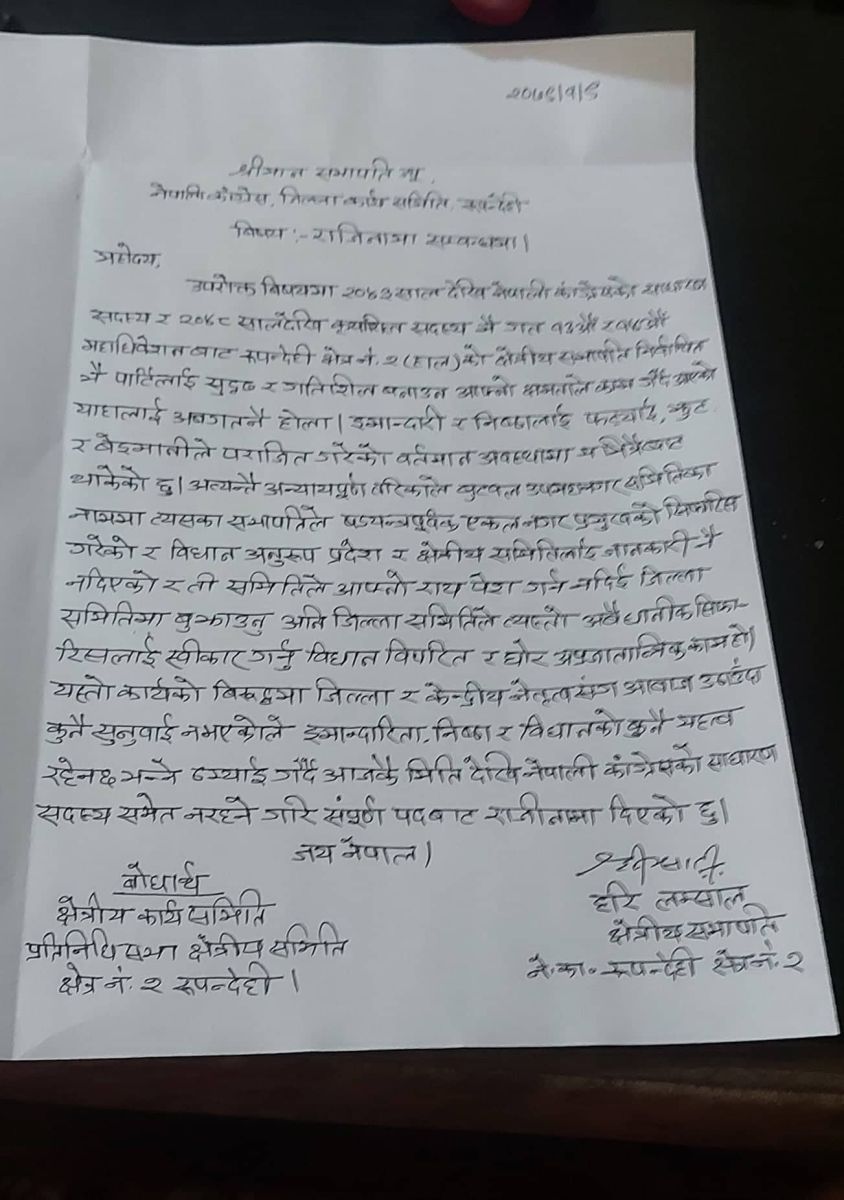 २०७९/१/९
श्रीमान सभापति ज्यू,
नेपाली कांग्रेस, जिल्ला कार्य समिति, रूपन्देही
विषय :- राजिनामा सम्वन्धमा।
महोदय,
उपरोक्त बिषयमा २०४३ साल देखि नेपाली कांग्रेसको साधारण
सदस्य र २०४८ सालदेखि कृयाशिल सदस्य भै गत १३औं र १४औं
महाधिवेशन बाट रूपन्देही क्षेत्र नं. २ (हाल) को क्षेत्रीय सभापति निर्वाचित
भै पार्टिलाई सुदृढ र गतिशिल बनाउन आफ्नो क्षमताले काम गर्दै आएको
यहालाई अवगतनै होला। इमान्दारी र निष्ठालाई फटयाई, झुट
र बेइमानीले पराजित गरेको वर्तमान अवस्थामा म भित्रैबाट
थाकेको छु। अत्यन्तै अन्यायपूर्ण तरिकाले बुटवल उपमहानगर समितिका
नाममा त्यसका सभापतिले षडयन्त्रपूर्वक एकल नगर प्रमुखको सिफारिस
गरेको र विधान अनुरूप प्रदेश र क्षेत्रीय समितिलाई जानकारी नै
नदिएको र ती समितिले आफ्नो राय पेश गर्न नदिई जिल्ला
समितिमा बुझाउनु अनि जिल्ला समितिले त्यस्तो अवैधानीक सिफा-
रिसलाई स्वीकार गर्नु विधान विपरित र घोर अप्रजातान्त्रिक काम हो।
यस्तो कार्यको बिरूद्धमा जिल्ला र केन्द्रीय नेतृत्व संग आवाज उठाउँदा
कुनै सुनुवाई नभएकोले इमान्दारिता, निष्ठा र विधानको कुनै महत्व
रहेनछ भन्ने ठम्याई गर्दै आजकै मिति देखि नेपाली कांग्रेसको साधारण
सदस्य समेत नरहने गरि संपूर्ण पदबाट राजीनामा दिएको छु।
जय नेपाल।
बोधार्थ
क्षेत्रीय कार्य समिति
प्रतिनिधि सभा क्षेत्रीय समिति
क्षेत्र नं. २ रूपन्देही।
हरि लम्साल
क्षेत्रीय सभापति
ने.का. रूपन्देही क्षेत्र नं. २